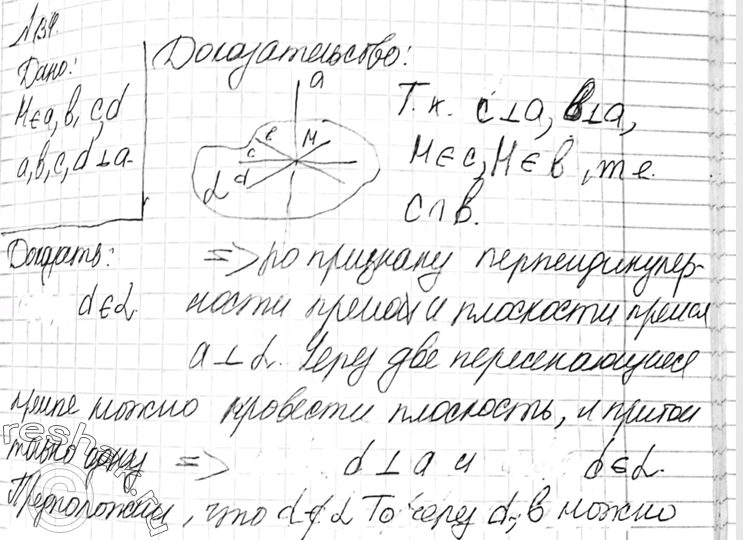 №134.
Дано:
M∈a, b, c, d
a, b, c, d ⊥ a.
Доказать:
d∈α.
Доказательство:
a
в
M
c
d
α
Т.к. c⊥a, b⊥a,
M∈c, M∈b, т.е.
c∩b.
=> по признаку перпендикуляр-
ности прямой и плоскости прямая
a⊥α. Через две пересекающиеся
прямые можно провести плоскость, и притом
только одну => d⊥a и d∈α.
Предположим, что d∉α То через d, b можно
reshak.ru